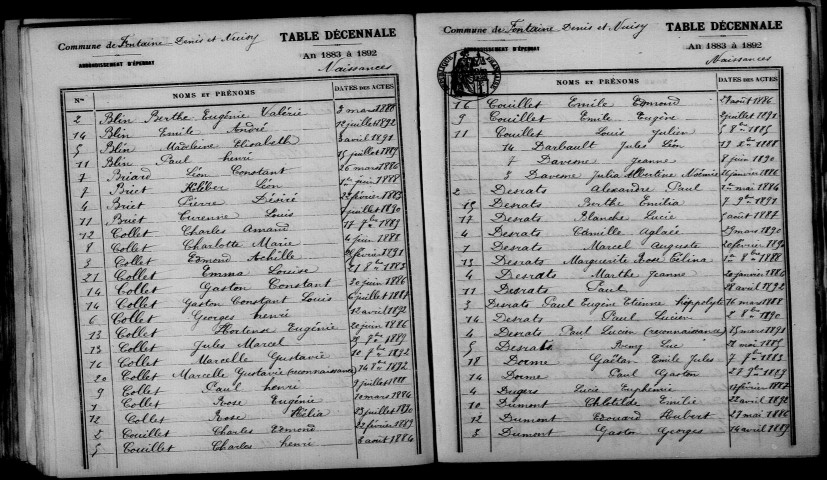 Commune de Fontaine Denis et Nuisy
TABLE DÉCENNALE
ARRONDISSEMENT D'ÉPERNAY
An 1883 à 1892
Naissances
Nos NOMS ET PRÉNOMS DATES DES ACTES
2 Blin Berthe Eugénie Valérie 3 mars 1888
14 Blin Emile André 12 juillet 1892
5 Blin Madeleine Elisabeth avril 1891
11 Blin Paul henri 15 juillet 1889
7 Briard Léon Constant 26 mars 1886
7 Briet Kléber Léon 1er juin 1888
4 Briet Pierre Désiré 22 février 1883
11 Briet Turenne Louis juillet 1890
12 Collet Charles Amand 17 1889
8 Collet Charlotte Marie 4 juin 1888
3 Collet Edmond Achille février 1891
21 Collet Emma Louise 21 8bre 1883
14 Collet Gaston Constant 30 juin 1886
14 Collet Gaston Constant Louis 6 juillet 1888
6 Collet Georges henri 12 avril 1892
13 Collet Hortense Eugénie 20 juin 1886
13 Collet Jules Marcel
16 Collet Marcelle Gustavie 10 1892
20 Collet Marcelle Gustavie (reconnaissance) 14 8bre 1892
9 Collet Paul henri 9 juillet
1 Collet Rose Eugénie 10 mars 1884
12 Collet Rose Hélia 23 juillet 1890
2 Couillet Charles Edmond 22 février 1889
5 Couillet Charles henri 6 août 1884
Commune de Fontaine Denis et Nuisy
TABLE DÉCENNALE
ARRONDISSEMENT D'ÉPERNAY
An 1883 à 1892
Naissances
Nos NOMS ET PRÉNOMS DATES DES ACTES
16 Couillet Emile Edmond 29 août 1886
9 Couillet Emile Eugène 2 juillet 1891
11 Couillet Louis Julien 5 8bre 1885
14 Darbault Jules Léon 13 1888
7 Davesne Jeanne 8 juin 1890
3 Davesne Julia Albertine Noémie janvier 1886
2 Desrats Alexandre Paul 1er mai 1884
15 Desrats Berthe Emilia 7 9bre 1891
17 Desrats Blanche Lucie août 1887
4 Desrats Camille Aglaée 29 mars 1890
1 Desrats Marcel Auguste 20 février
13 Desrats Marguerite Rose Célina 1er 8bre 1888
4 Desrats Marthe Jeanne 20 janvier 1886
11 Desrats Paul 28 avril 1892
3 Desrats Paul Eugène Etienne hippolyte 16 mars 1888
14 Desrats Paul Lucien 2 8bre 1890
4 Desrats Paul Lucien (reconnaissance) 15 mars 1891
5 Desrats Rémy Luc 21 mai 1885
18 Dorme Gaëtan Emile Jules 7 9bre 1883
14 Dorme Paul Gaston 28 9bre 1889
4 Dugers Lucie Euphémie février 1887
10 Dumont Chlotilde Emilie 22 avril 1892
12 Dumont Edouard Hubert 27 mai 1886
3 Dumont Gaston Georges 14 avril 1889